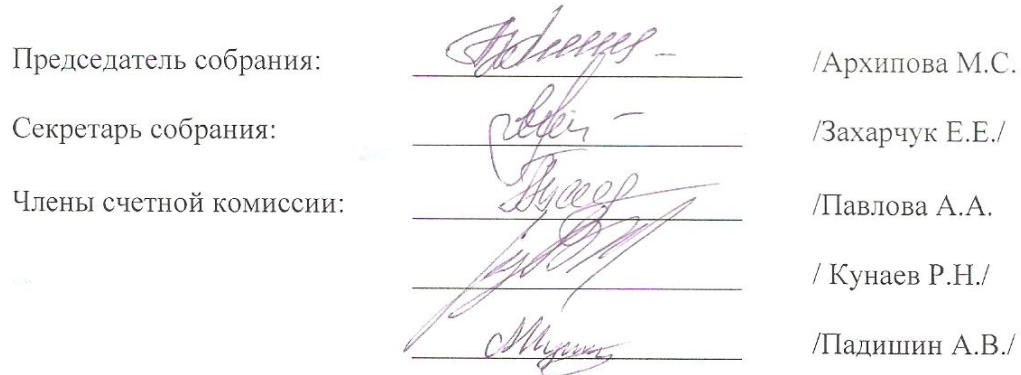 Председатель собрания: /Архипова М.С.
Секретарь собрания: /Захарчук Е.Е./
Члены счетной комиссии: /Павлова А.А.
/ Кунаев Р.Н./
/Падишин А.В./